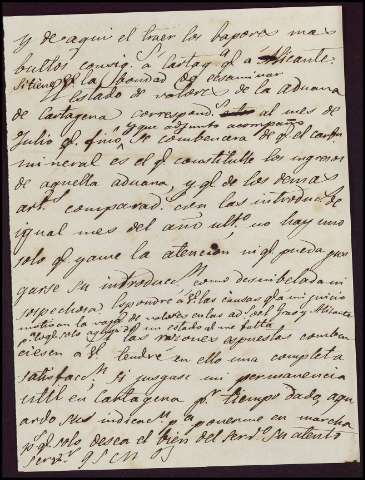 y de aqui el traer los bapores mas
bultos consig.s á Cartag.a q.e á Alicante.
Si tiene V.E. la bondad de examinar
el estado de valores de la aduana
de Cartagena correspond.te al mes de
Julio q.e fino, y que adjunto acompaño
se combencera de q.e el carbon
mineral es el q.e constitulle los ingresos
de aquella aduana, y q.e de los demas
art.s comparad.s con las introduc.s de
igual mes del año ult.o no hay uno
solo q.e yame la atencion ni q.e pueda juz
garse su introducc.n como desnibelada ni
sospechosa. Espondre á V.E. las causas q.e a mi juicio
motivan la vaja de valores en las ad.s
solo un estado al me falta
Si las razones espuestas comben
ciesen a V.E. tendre en ello una completa
satisfacc.n, si jusgase mi permanencia
util en Cartagena p.r tiempo dado, agu
ardo sus indicac.s p.a ponerme en marcha
p.s q.e solo desea el bien del serv.o su atento
serv.r q s m b